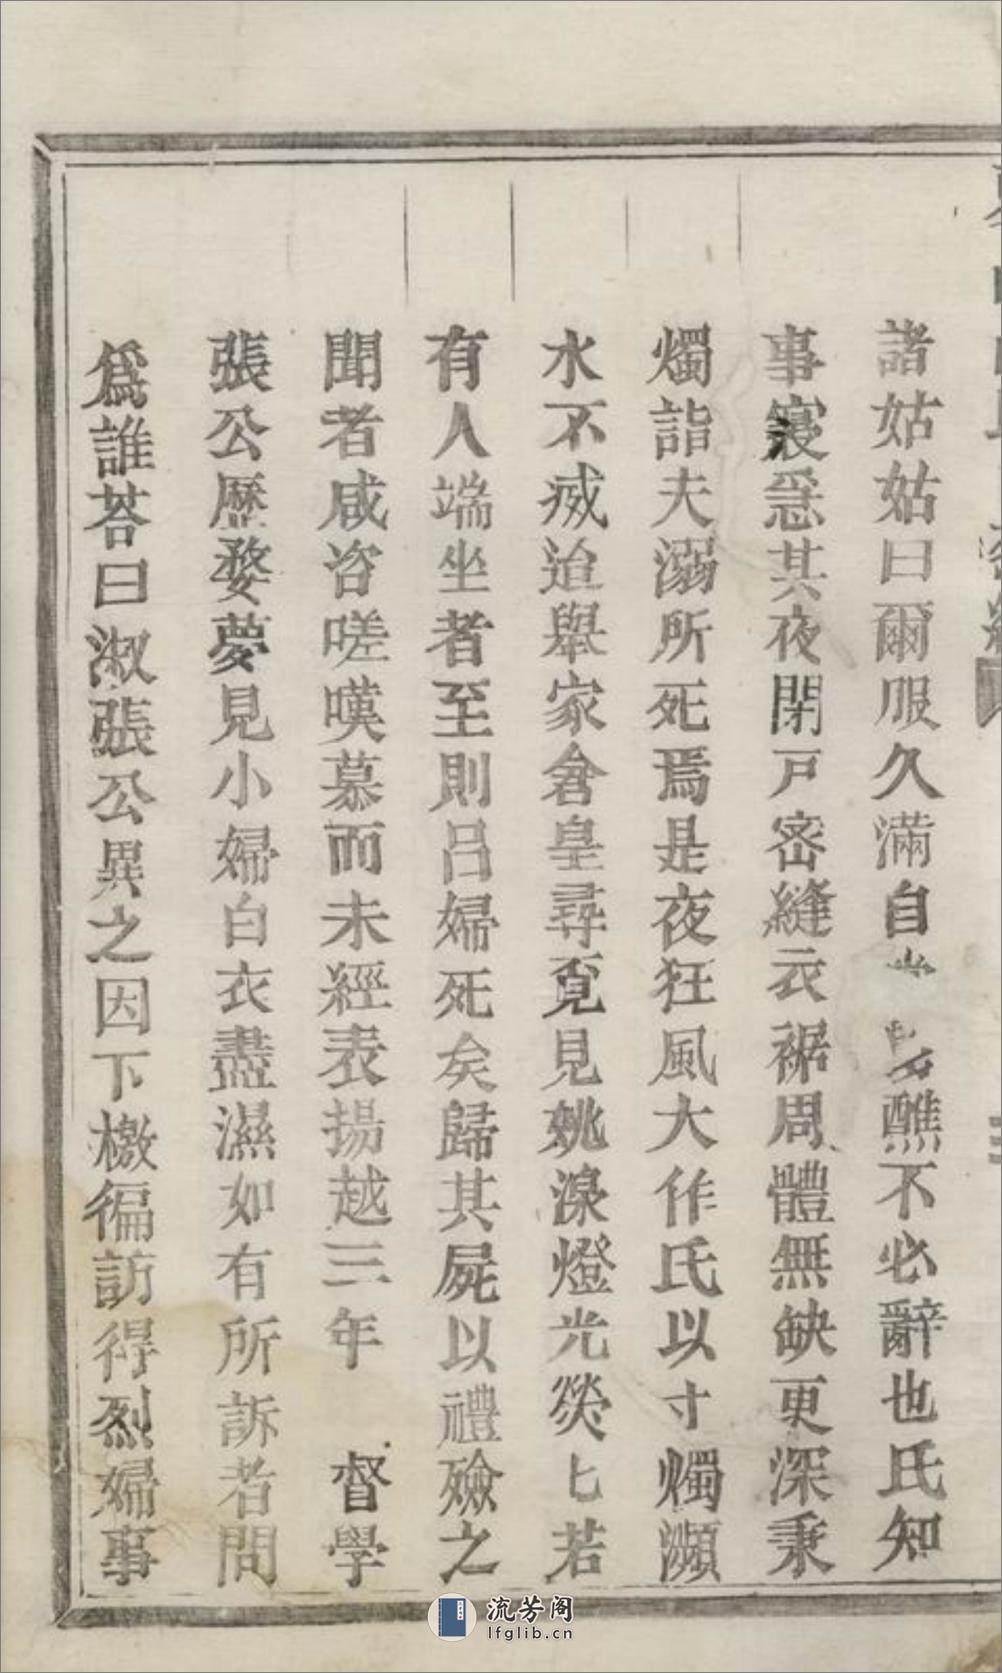 諸姑姑曰爾服久滿自醮不必辭也氏知
事寖急其夜閉戸密縫衣裾周體無缺更深秉
燭詣夫溺所死焉是夜狂風大作氏以寸燭瀕
水不烕迨舉家倉皇尋覔見姚湶燈光熒匕若
有人端坐者至則吕婦死矣歸其屍以禮殮之
聞者咸咨嗟嘆慕而未經表揚越三年　督學
張公歴婺夢見小婦白衣盡濕如有所訴者問
爲誰荅曰淑張公異之因下檄徧訪得烈婦事
流芳阁
lfglib.cn